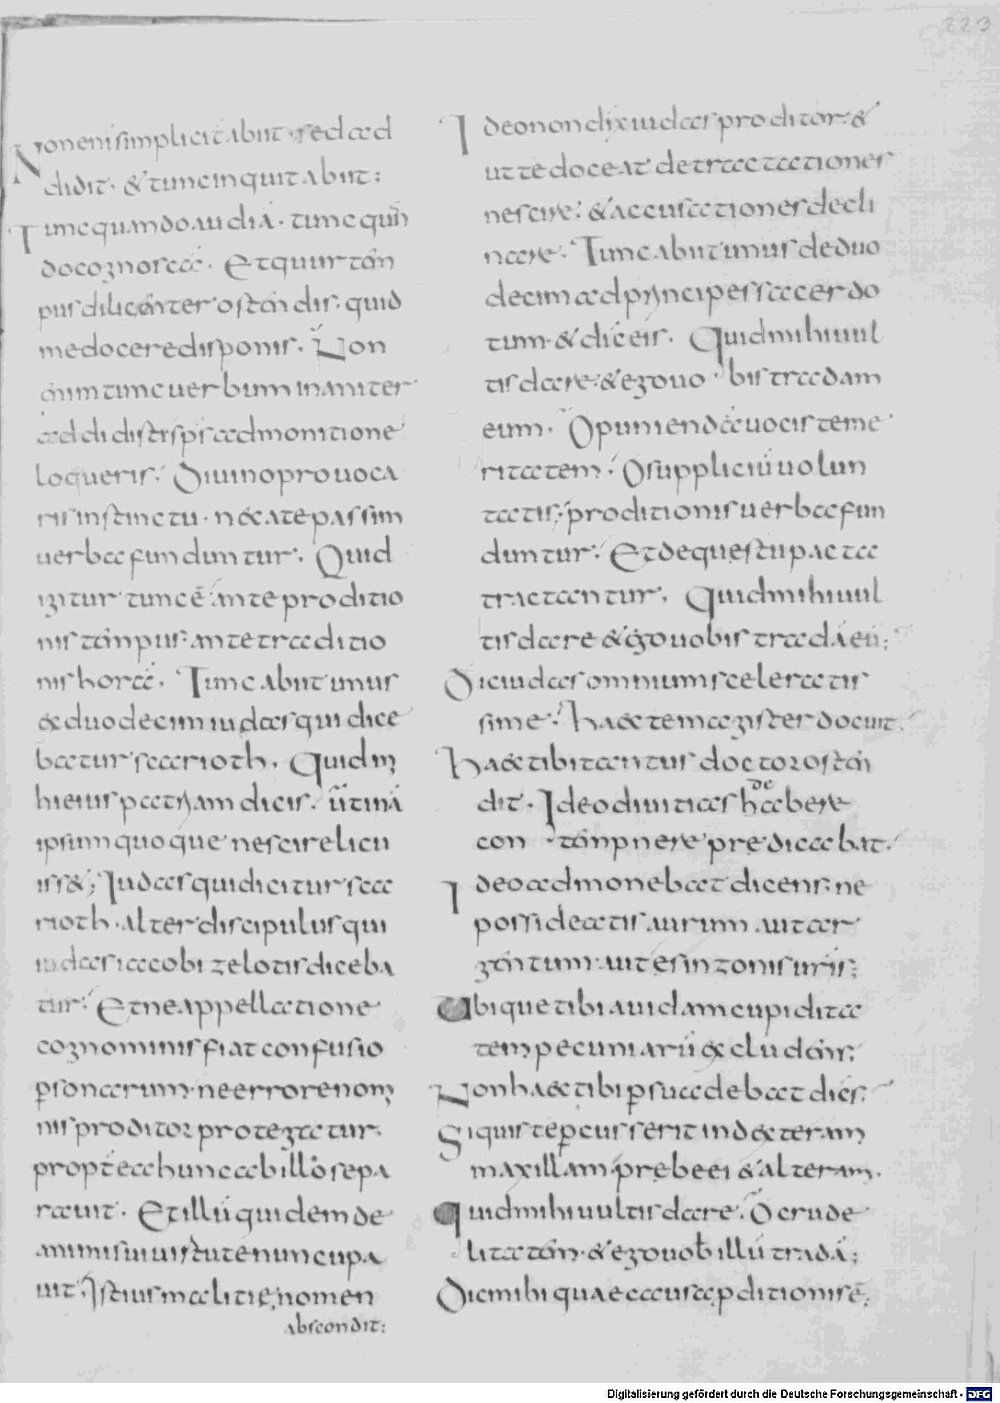 223
Non eni simpliciť abiit · sed ad
didit · & tunc inquit abiit ;
Tunc quando audiā · tunc qũn
do cognoscā · Et quur tem
pus diligenter ostendis · quid
me docere disponis · Non
enim tunc uerbum inaniter
ad didisti sps admonitione
loqueris · Diuino prouoca
ris instinctu · nec ate passim
uerba funduntur · Quid
igitur tunc ē ante proditio
nis tempus · ante traditio
nis horā · Tunc abiit unus
ex duodecim iudas qui dice
batur scarioth · Quid m
hi eius patriam dicis · utinā
ipsum quoque nescire licu
iss& ; Iudas qui dicitur sca
rioth · alter discipulus qui
iudas iacobi zelotis diceba
tur · Et ne appellatione
cognominis fiat confusio
psonarum · ne errore nom
nis proditor protegatur ·
propterea hunc ab illo sepa
rauit · Et illū quidem de
animi sui uirtute nuncupa
uit · Istius malitię nomen
abscondit ;
Ideo non dix iudas proditor · &
ut te doceat de tractationes
nescire · & accusationes decli
nare · Tunc abiit unus de duo
decim ad principes sacerdo
tum · & dic eis · Quid mihi uul
tis dare · & ego uobis tradam
eum · O puniendā uocis teme
ritatem · O supplicii uolun
tatis · proditionis uerba fun
duntur · Et de questu pacta
tractantur · Quid mihi uul
tis dare & ego uobis tradā eū ;
Dic iudas omnium sceleratis
sime · haec te magister docuit ·
Haec tibi tantus doctor osten
dit · Ideo diuitias habere de
con tempnere predicabat ·
Ideo admonebat dicens · ne
possideatis aurum · aut ar
gentum · aut es in zonis uris ;
Ubique tibi auidam cupidita
tem pecuniarū excludens ;
Non haec tibi psuadebat dies ·
Si quis te percusserit in dexteram
maxillam · prebe ei & alteram ·
Quid mihi uultis dare · O crude
litatem · & ego uob illū tradā ;
Dic mihi quae accusa pditionis ē ;
Digitalisierung gefördert durch die Deutsche Forschungsgemeinschaft - DFG